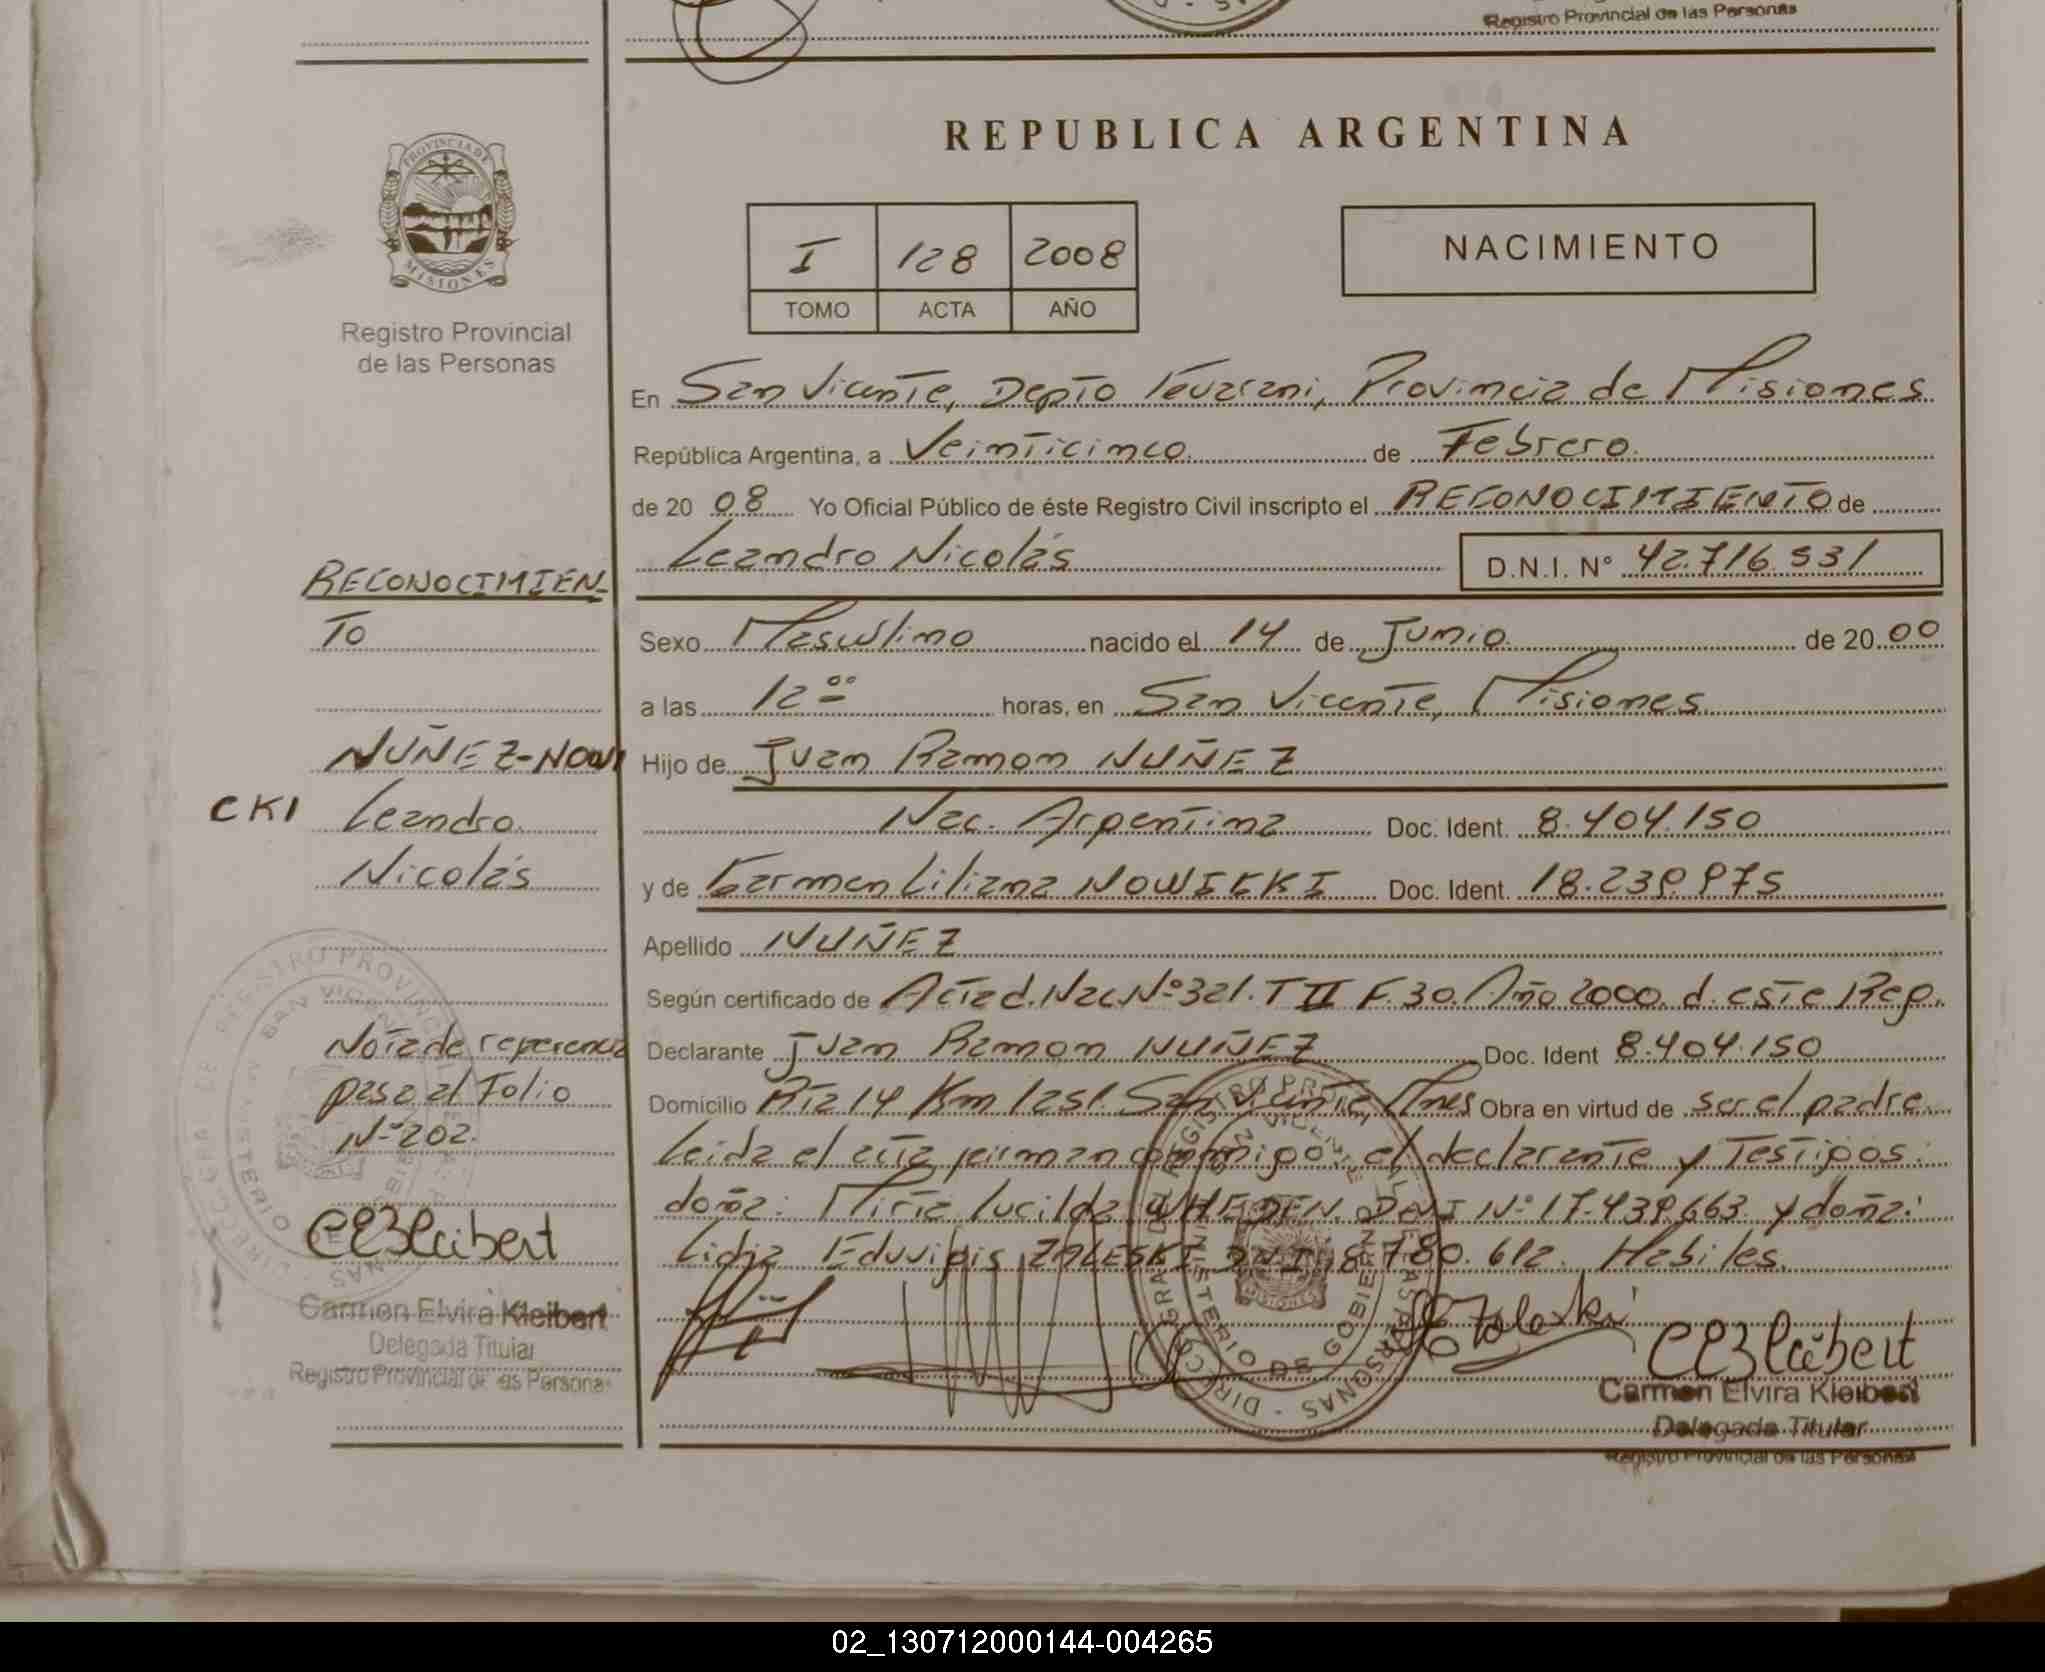 Registro Provincial de las Personas
REPUBLICA ARGENTINA
PROVINCIA DE
MISIONES
Registro Provincial
de las Personas
I 128 2008
TOMO ACTA AÑO
NACIMIENTO
En San Vicente, Depto Guarani, Provincia de Misiones
República Argentina, a Veinticinco de Febrero
de 20 08 Yo Oficial Público de éste Registro Civil inscripto el RECONOCIMIENTO de
Leandro Nicolás D.N.I. N° 42.716.931
RECONOCIMIEN-
TO
Sexo Masculino nacido el 14 de Junio de 20 00
a las 12 00 horas, en San Vicente, Misiones
NUÑEZ-NOWI
CKI Leandro
Nicolás
Hijo de Juan Ramon NUÑEZ
Nac. Argentina Doc. Ident. 8.404.150
y de Carmen Liliana NOWICKI Doc. Ident. 18.239.975
Apellido NUÑEZ
Según certificado de Acta d. Nac. N° 321. T II F. 30. Año 2000. d. este Reg.
Nota de referencia
pasa al Folio
N° 202.
Declarante Juan Ramon NUÑEZ Doc. Ident 8.404.150
Domicilio Rta 14 Km 1251. San Vicente, Mnes Obra en virtud de ser el padre
Leida el acta firman conmigo el declarante y Testigos:
doña: Mirta Lucilda DNI N° 17.439.663 y doña:
Lidia Eduvigis ZALESKI DNI 8.780.612. Habiles.
CEKleibert
Carmen Elvira Kleibert
Delegada Titular
Registro Provincial de las Personas
CEKleibert
Carmen Elvira Kleibert
Delegada Titular
Registro Provincial de las Personas
02_130712000144-004265